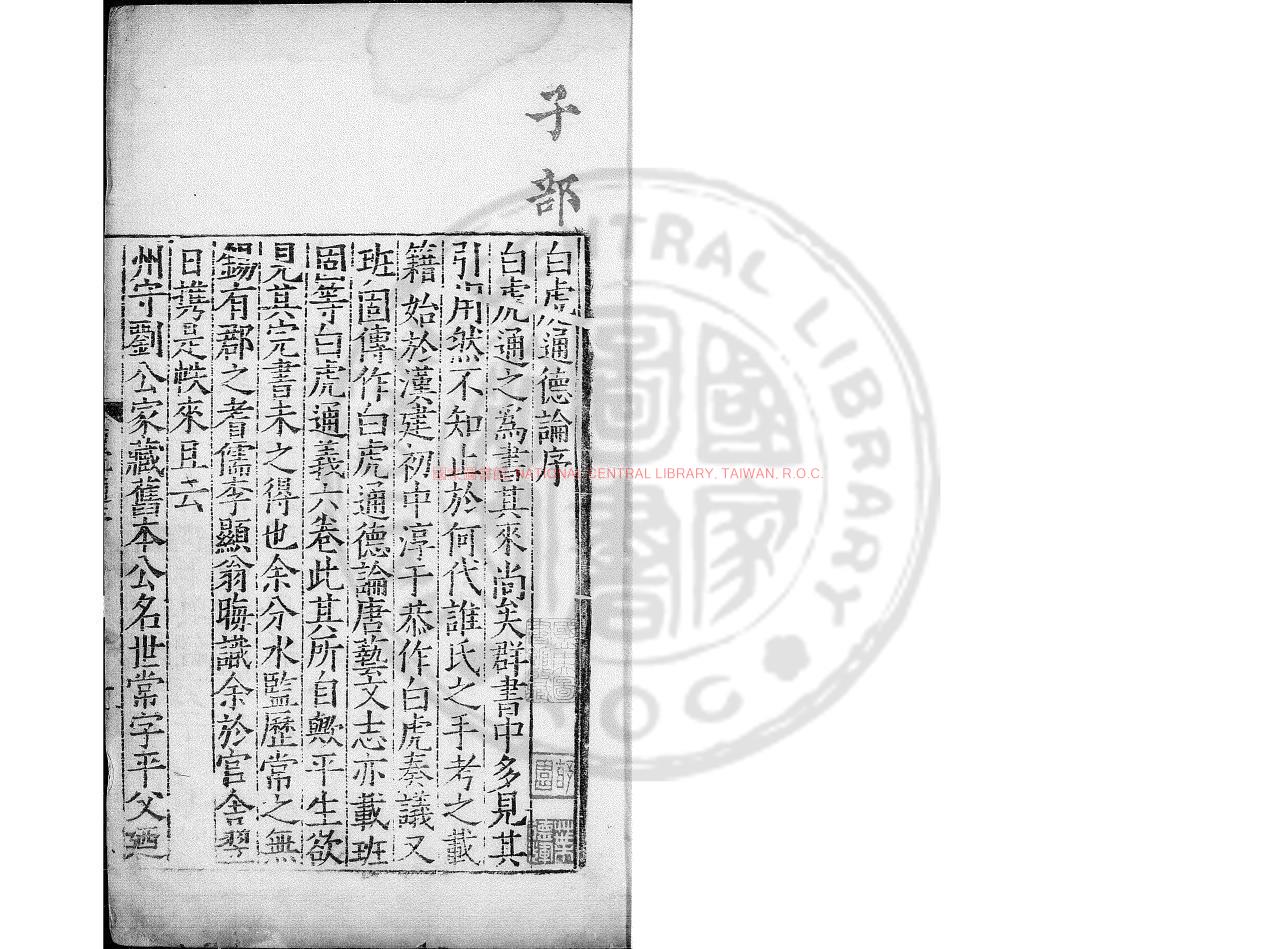 子部
白虎通德論序
白虎通之爲書其來尚矣群書中多見其
引用然不知止於何代誰氏之手考之載
籍始於漢建初中淳于恭作白虎奏議又
班固傳作白虎通德論唐藝文志亦載班
固等白虎通義六卷此其所自歟平生欲
見其完書未之得也余分水監歷常之無
錫有郡之耆儒李顯翁晦識余於官舍翌
日攜是帙來且云
州守劉公家藏舊本公名世常字平父迺
國家圖書館 NATIONAL CENTRAL LIBRARY, TAIWAN, R.O.C.
國家圖書
CENTRAL LIBRARY
ROC